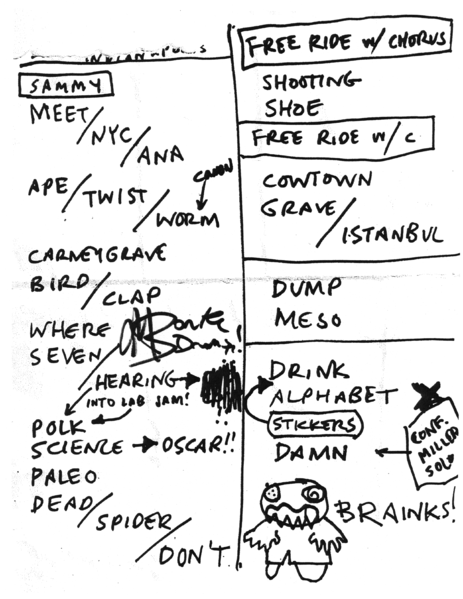 SAMMY
MEET/
NYC/
ANA
CANON
APE/
TWIST/
WORM
CARNEYGRAVE
BIRD/
CLAP
WHERE
SEVEN
HEARING
INTO LAB JAM!
POLK
SCIENCE → OSCAR!!
PALEO
DEAD/
SPIDER/
DON'T
FREE RIDE W/ CHORUS
SHOOTING
SHOE
FREE RIDE W/ C
COWTOWN
GRAVE/
ISTANBUL
DUMP
MESO
DRINK
ALPHABET
STICKERS
DAMN
CONF.
MILLER
SOLO
BRAINKS!